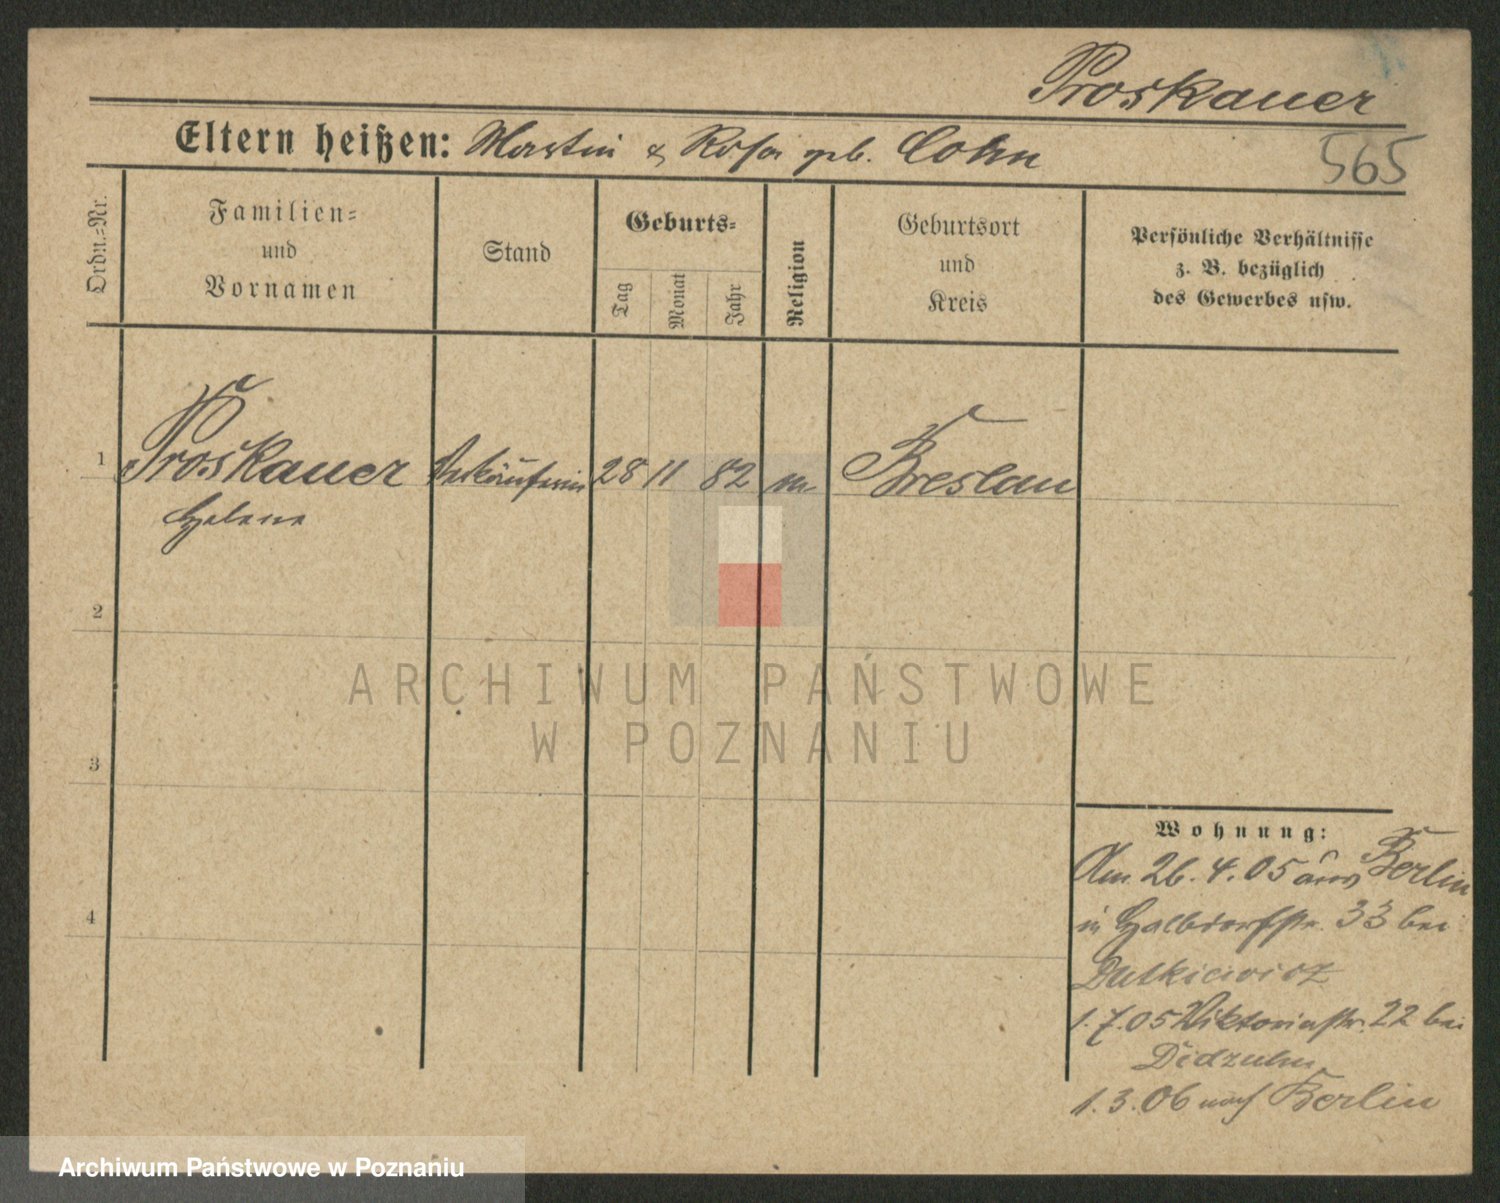 Proskauer
Eltern heißen: Martin & Rosa geb. Cohn
565
Ordn.=Nr.
Familien=
und
Vornamen
Stand
Geburts=
Tag
Monat
Jahr
Religion
Geburtsort
und
Kreis
Persönliche Verhältnisse
z. B. bezüglich
des Gewerbes usw.
1 Proskauer Verkäuferin 28 11 82 m Breslau
Helene
2
3
4
ARCHIWUM PAŃSTWOWE
W POZNANIU
Wohnung:
Am 26.4.05 aus Berlin
in Halbdorfstr. 33 bei
Dutkiewicz
1.7.05 Viktoriastr. 22 bei
Didzuhn
1.3.06 nach Berlin
Archiwum Państwowe w Poznaniu